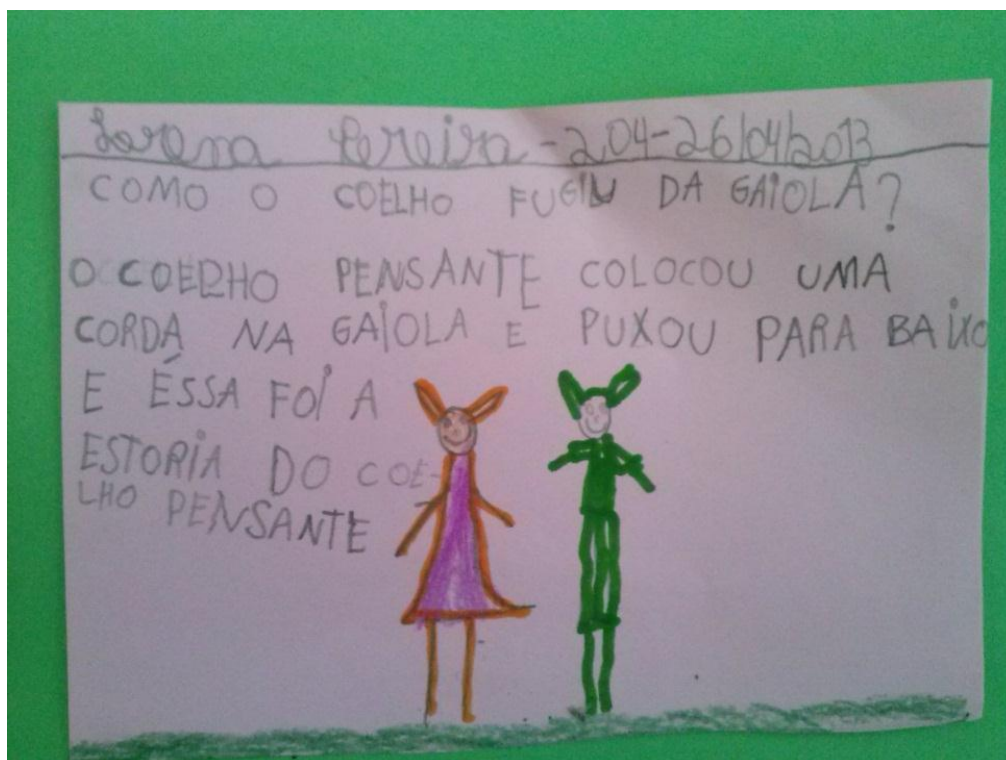 Lorena Pereira - 204 - 26/04/2013
COMO O COELHO FUGIU DA GAIOLA?
O COELHO PENSANTE COLOCOU UMA
CORDA NA GAIOLA E PUXOU PARA BAIXO
E ÉSSA FOI A
ESTORIA DO COE-
LHO PENSANTE